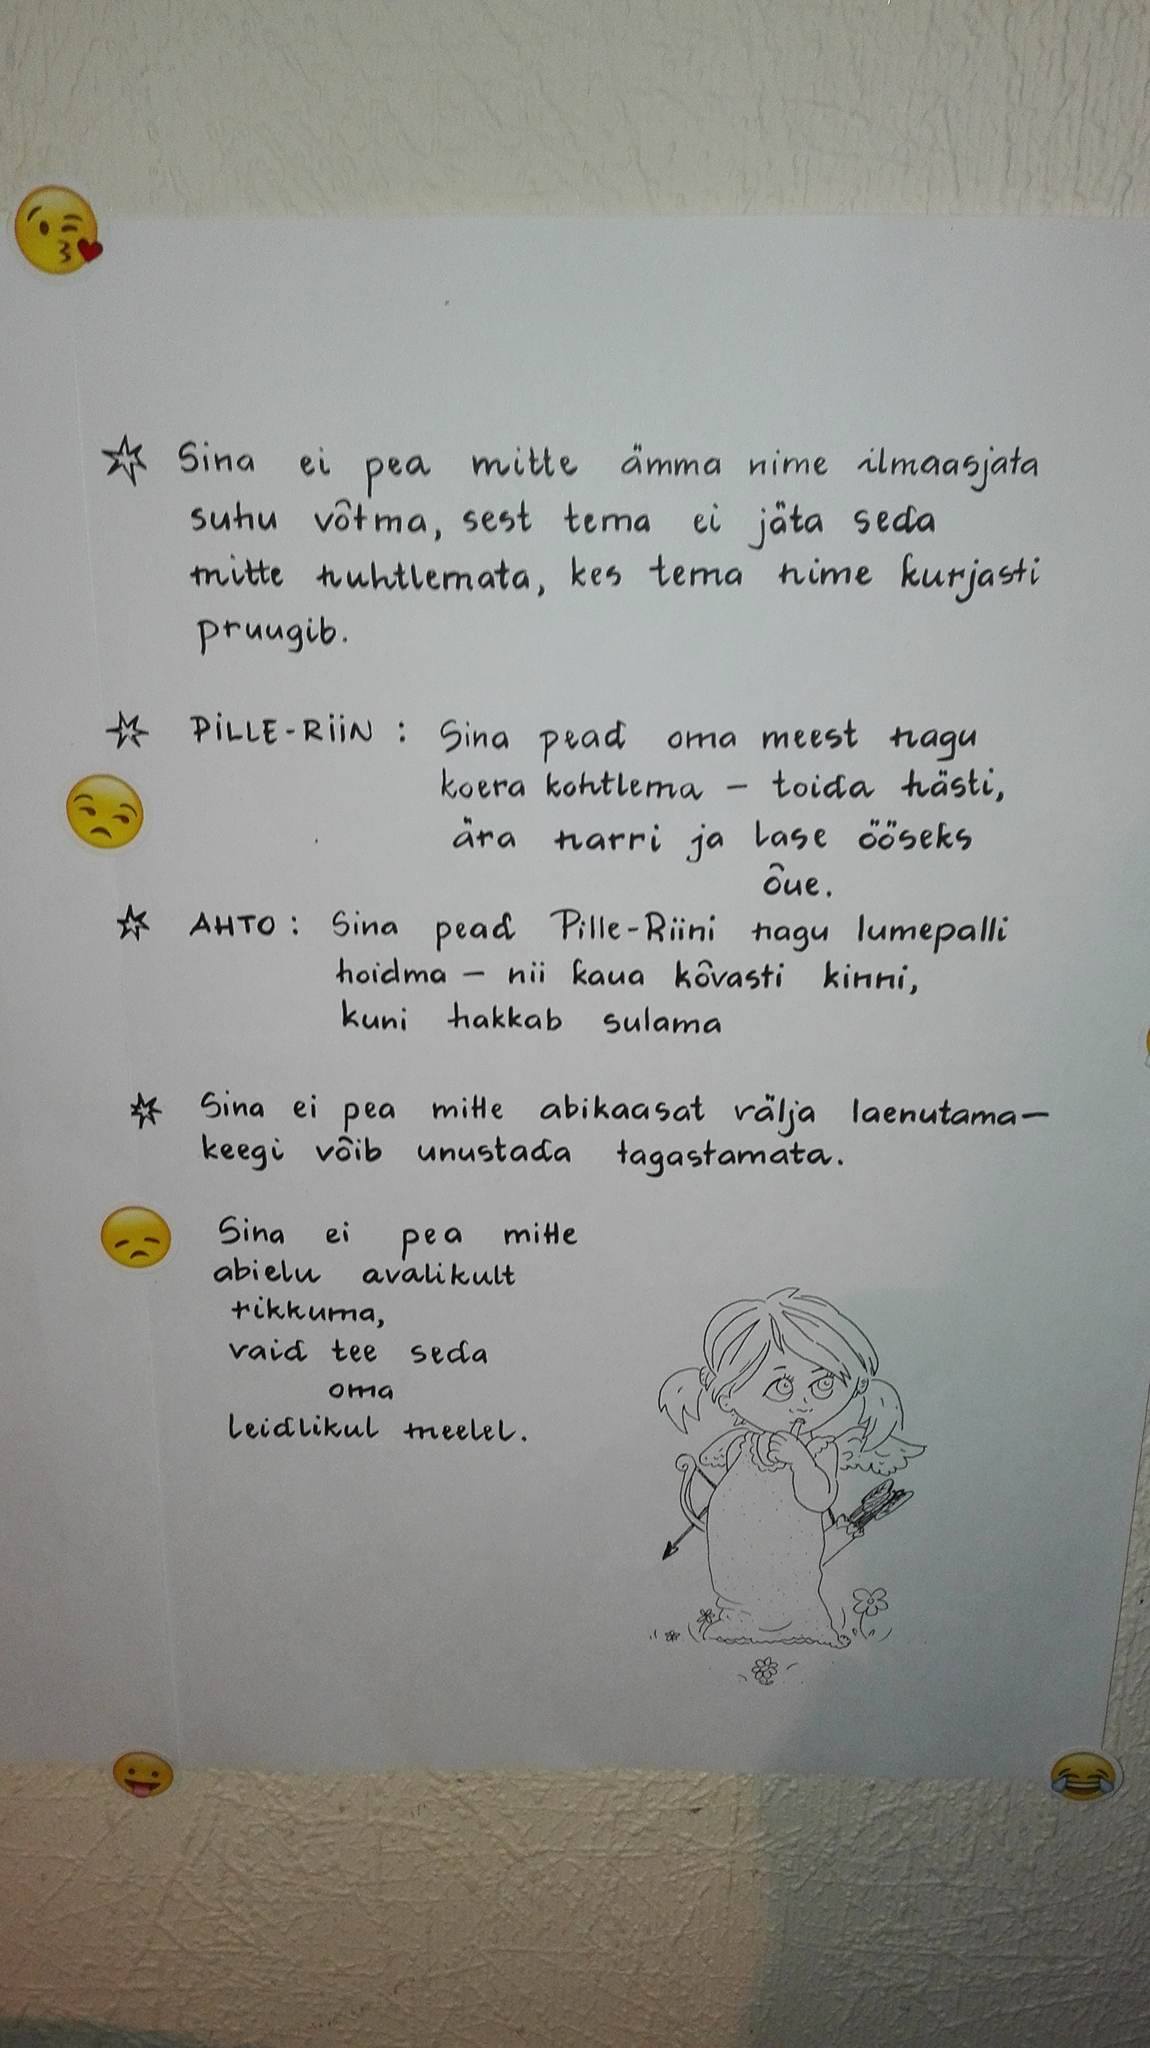 Sina ei pea mitte ämma nime ilmaasjata
suhu võtma, sest tema ei jäta seda
mitte nuhtlemata, kes tema nime kurjasti
pruugib.
PILLE-RIIN : Sina pead oma meest nagu
koera kohtlema – toida hästi,
ära narri ja lase ööseks
õue.
AHTO : Sina pead Pille-Riini nagu lumepalli
hoidma – nii kaua kõvasti kinni,
kuni hakkab sulama
Sina ei pea mitte abikaasat välja laenutama –
keegi võib unustada tagastamata.
Sina ei pea mitte
abielu avalikult
rikkuma,
vaid tee seda
oma
leidlikul meelel.